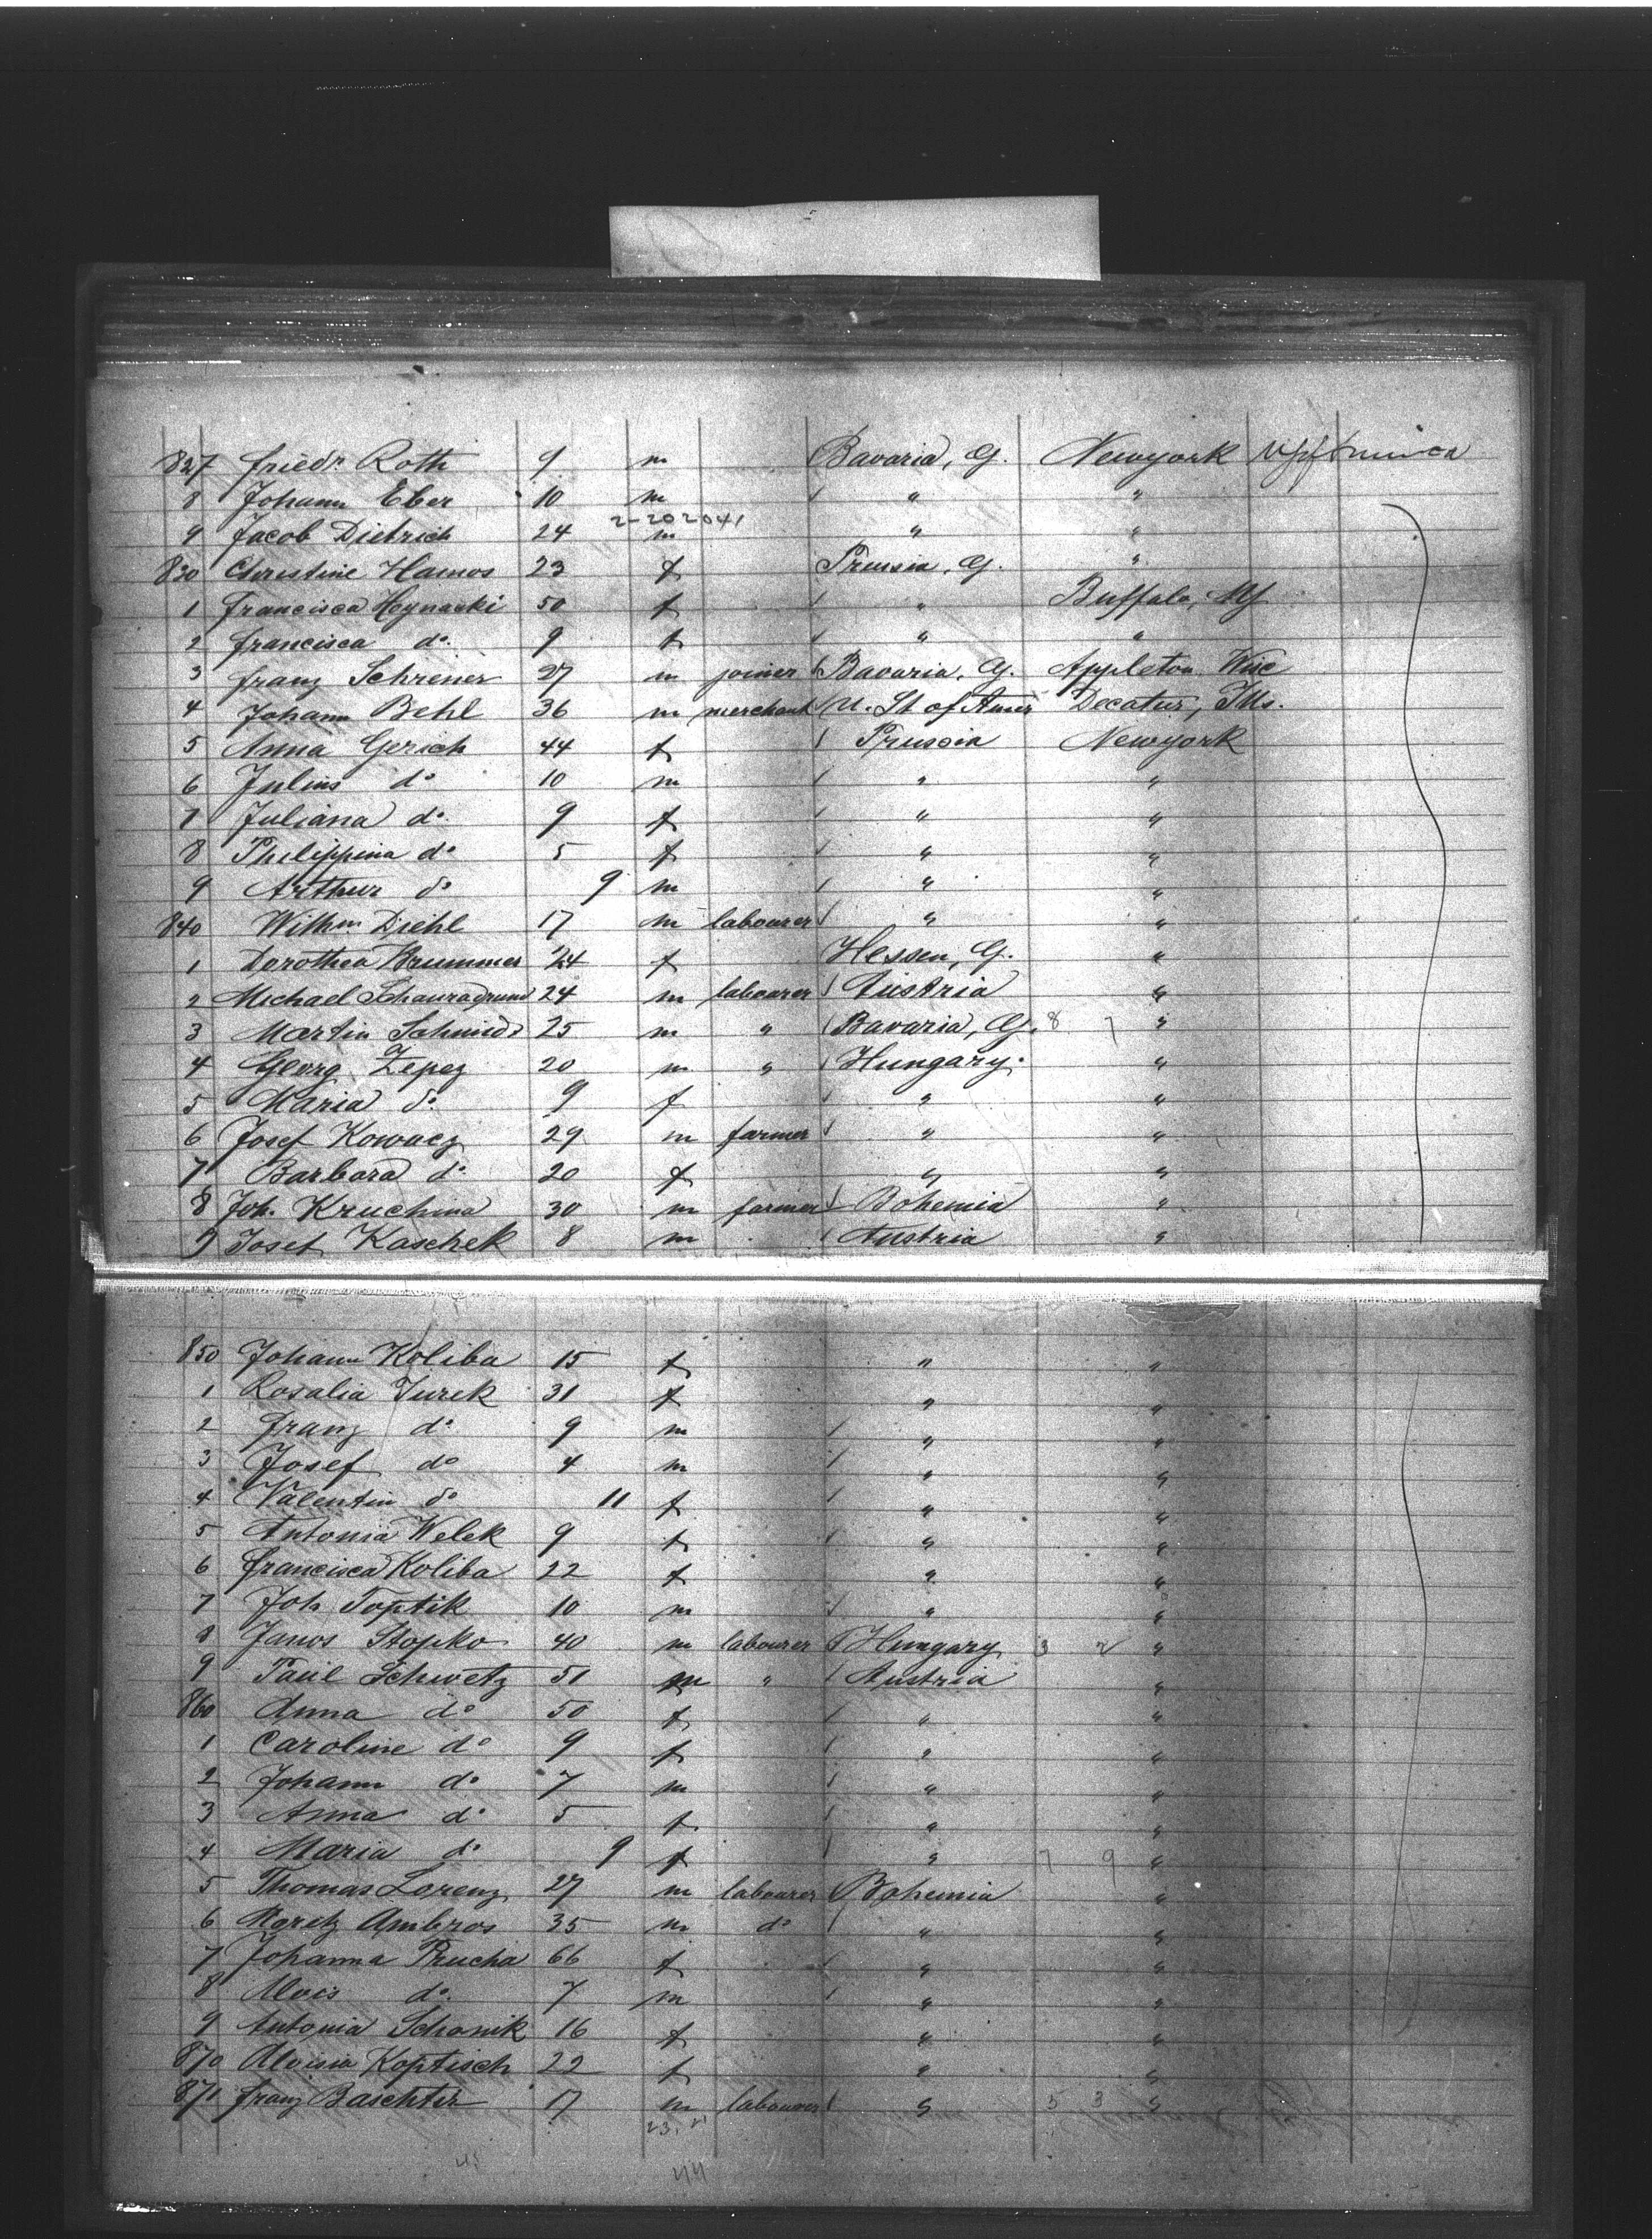 827 Friedr. Roth 9 m Bavaria, G. Newyork
8 Johann Eber 10 m " "
2-202041
9 Jacob Dietrich 24 m " "
830 Christine Hamos 23 f Prussia, G. "
1 Francisca Hoynacki 50 f " Buffalo, NY
2 Francisca do. 9 f " "
3 Franz Schreiner 27 m joiner Bavaria, G. Appleton Wisc
4 Johann Behl 36 m merchant U. St of Amer Decatur, Ills.
5 Anna Gerich 44 f Prussia Newyork
6 Julius do 10 m " "
7 Juliana do. 9 f " "
8 Philippina do 5 f " "
9 Arthur do 9 m " "
840 Wilhm Diehl 17 m labourer " "
1 Dorothea Brummer 24 f Hessen, G. "
2 Michael 24 m labourer Austria "
3 Martin Schmidt 25 m " Bavaria, G. 8 7 "
4 Georg Zepez 20 m " Hungary. "
5 Maria do. 9 f " "
6 Josef Kowacz 29 m farmer " "
7 Barbara do. 20 f " "
8 Joh. Kruchina 30 m farmer Bohemia "
9 Josef Kaschek 8 m Austria "
850 Johann Koliba 15 f " "
1 Rosalia Jurek 31 f " "
2 Franz do. 9 m " "
3 Josef do 4 m " "
4 Valentin do 11 f " "
5 Antonia Welek 9 f " "
6 Francisca Koliba 22 f " "
7 Joh Toptik 10 m " "
8 Janos Stopko 40 m labourer Hungary 3 2 "
9 Paul Schwetz 51 m " Austria "
860 Anna do 50 f " "
1 Caroline do 9 f " "
2 Johann do. 7 m " "
3 Anna do 5 f " "
4 Maria do 9 f " 7 9 "
5 Thomas Lorenz 27 m labourer Bohemia "
6 Moritz Ambros 35 m do " "
7 Johanna Prucha 66 f " "
8 Alois do. 7 m " "
9 Antonia Schonik 16 f " "
870 Aloisia Koptisch 22 f " "
871 Franz Baschtir 17 m labourer " 5 3 "
23. 21
45 44